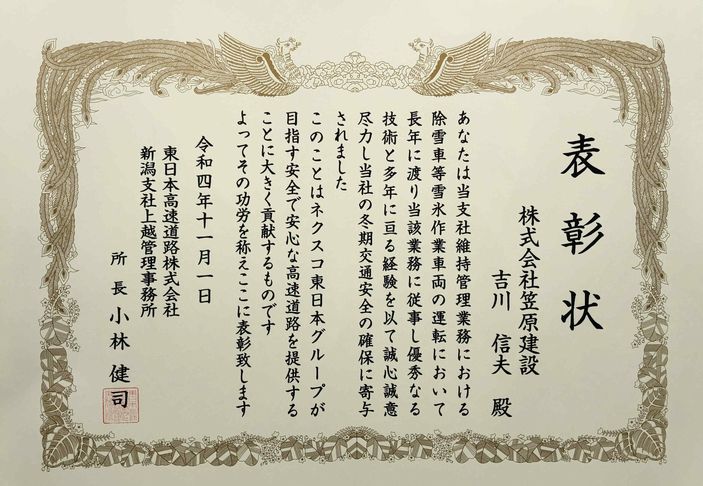 表彰状
株式会社笠原建設
吉川 信夫 殿
あなたは当支社維持管理業務における
除雪車等雪氷作業車両の運転において
長年に渡り当該業務に従事し優秀なる
技術と多年に亘る経験を以て誠心誠意
尽力し当社の冬期交通安全の確保に寄与
されました
このことはネクスコ東日本グループが
目指す安全で安心な高速道路を提供する
ことに大きく貢献するものです
よってその功労を称えここに表彰致します
令和四年十一月一日
東日本高速道路株式会社
新潟支社上越管理事務所
所長 小林 健司